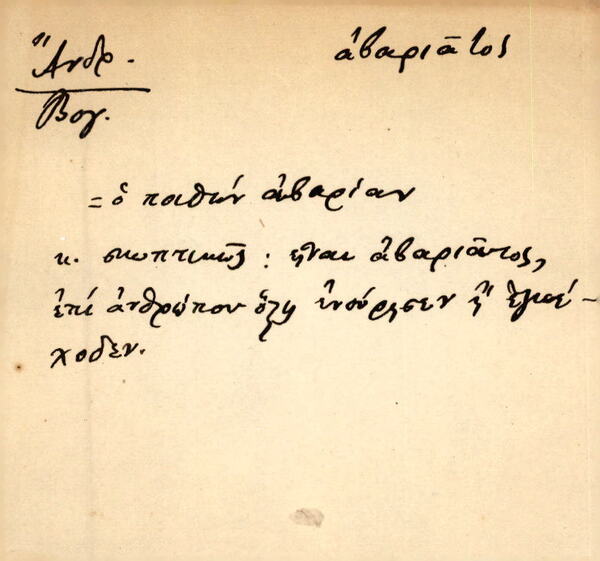 Ἄνδρ. ἀβαριᾶτος
Βογ.
= ὁ παθὼν ἀβαρίαν
κ. σκωπτικῶς : εἶναι ἀβαριᾶτος,
ἐπὶ ἀνθρώπου ὅστις ἐνούρησεν ἢ
χοδεν.